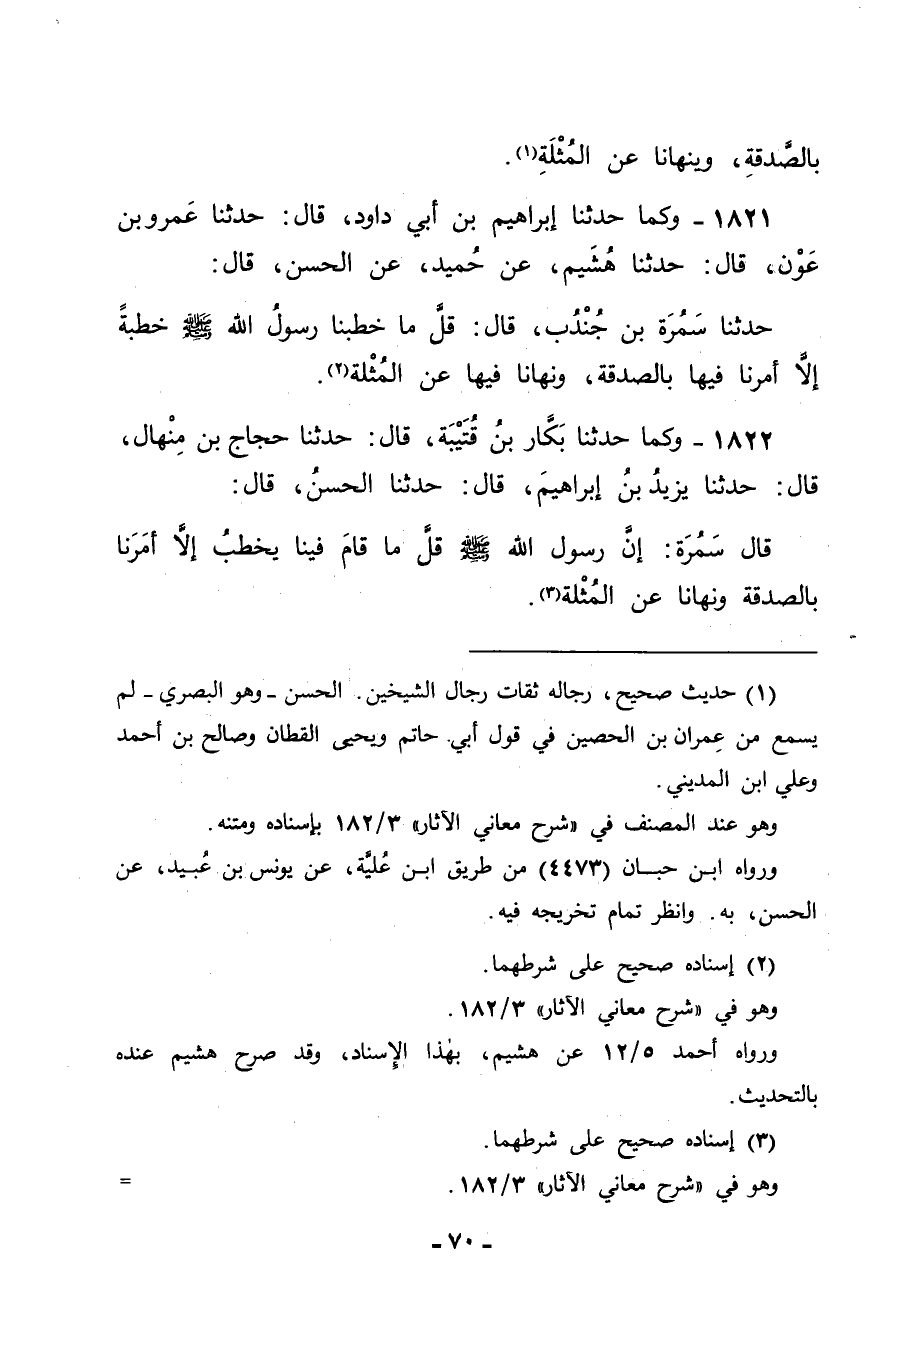 بالصَّدقةِ، وينهانا عن المُثْلَةِ(١).
١٨٢١ ـ وكما حدثنا إبراهيم بن أبي داود، قال: حدثنا عَمرو بن
عَوْن، قال: حدثنا هُشَيم، عن حُميد، عن الحسن، قال:
حدثنا سَمُرَة بن جُنْدُب، قال: قلَّ ما خطبنا رسولُ الله ﷺ خطبةً
إلاَّ أمرنا فيها بالصدقة، ونهانا فيها عن المُثْلة(٢).
١٨٢٢ ـ وكما حدثنا بَكَّار بنُ قُتَيْبَة، قال: حدثنا حجاج بن مِنْهال،
قال: حدثنا يزيدُ بنُ إبراهيمَ، قال: حدثنا الحسنُ، قال:
قال سَمُرَة: إنَّ رسول الله ﷺ قلَّ ما قامَ فينا يخطبُ إلاَّ أمَرَنا
بالصدقة ونهانا عن المُثْلة(٣).
(١) حديث صحيح، رجاله ثقات رجال الشيخين. الحسن ـ وهو البصري ـ لم
يسمع من عِمران بن الحصين في قول أبي حاتم ويحيى القطان وصالح بن أحمد
وعلي ابن المديني.
وهو عند المصنف في «شرح معاني الآثار» ١٨٢/٣ بإسناده ومتنه.
ورواه ابن حبان (٤٤٧٣) من طريق ابن عُليَّة، عن يونس بن عُبيد، عن
الحسن، به. وانظر تمام تخريجه فيه.
(٢) إسناده صحيح على شرطهما.
وهو في «شرح معاني الآثار» ١٨٢/٣.
ورواه أحمد ١٢/٥ عن هشيم، بهٰذا الإِسناد، وقد صرح هشيم عنده
بالتحديث.
(٣) إسناده صحيح على شرطهما.
وهو في «شرح معاني الآثار» ١٨٢/٣. =
ـ ٧٠ ـ